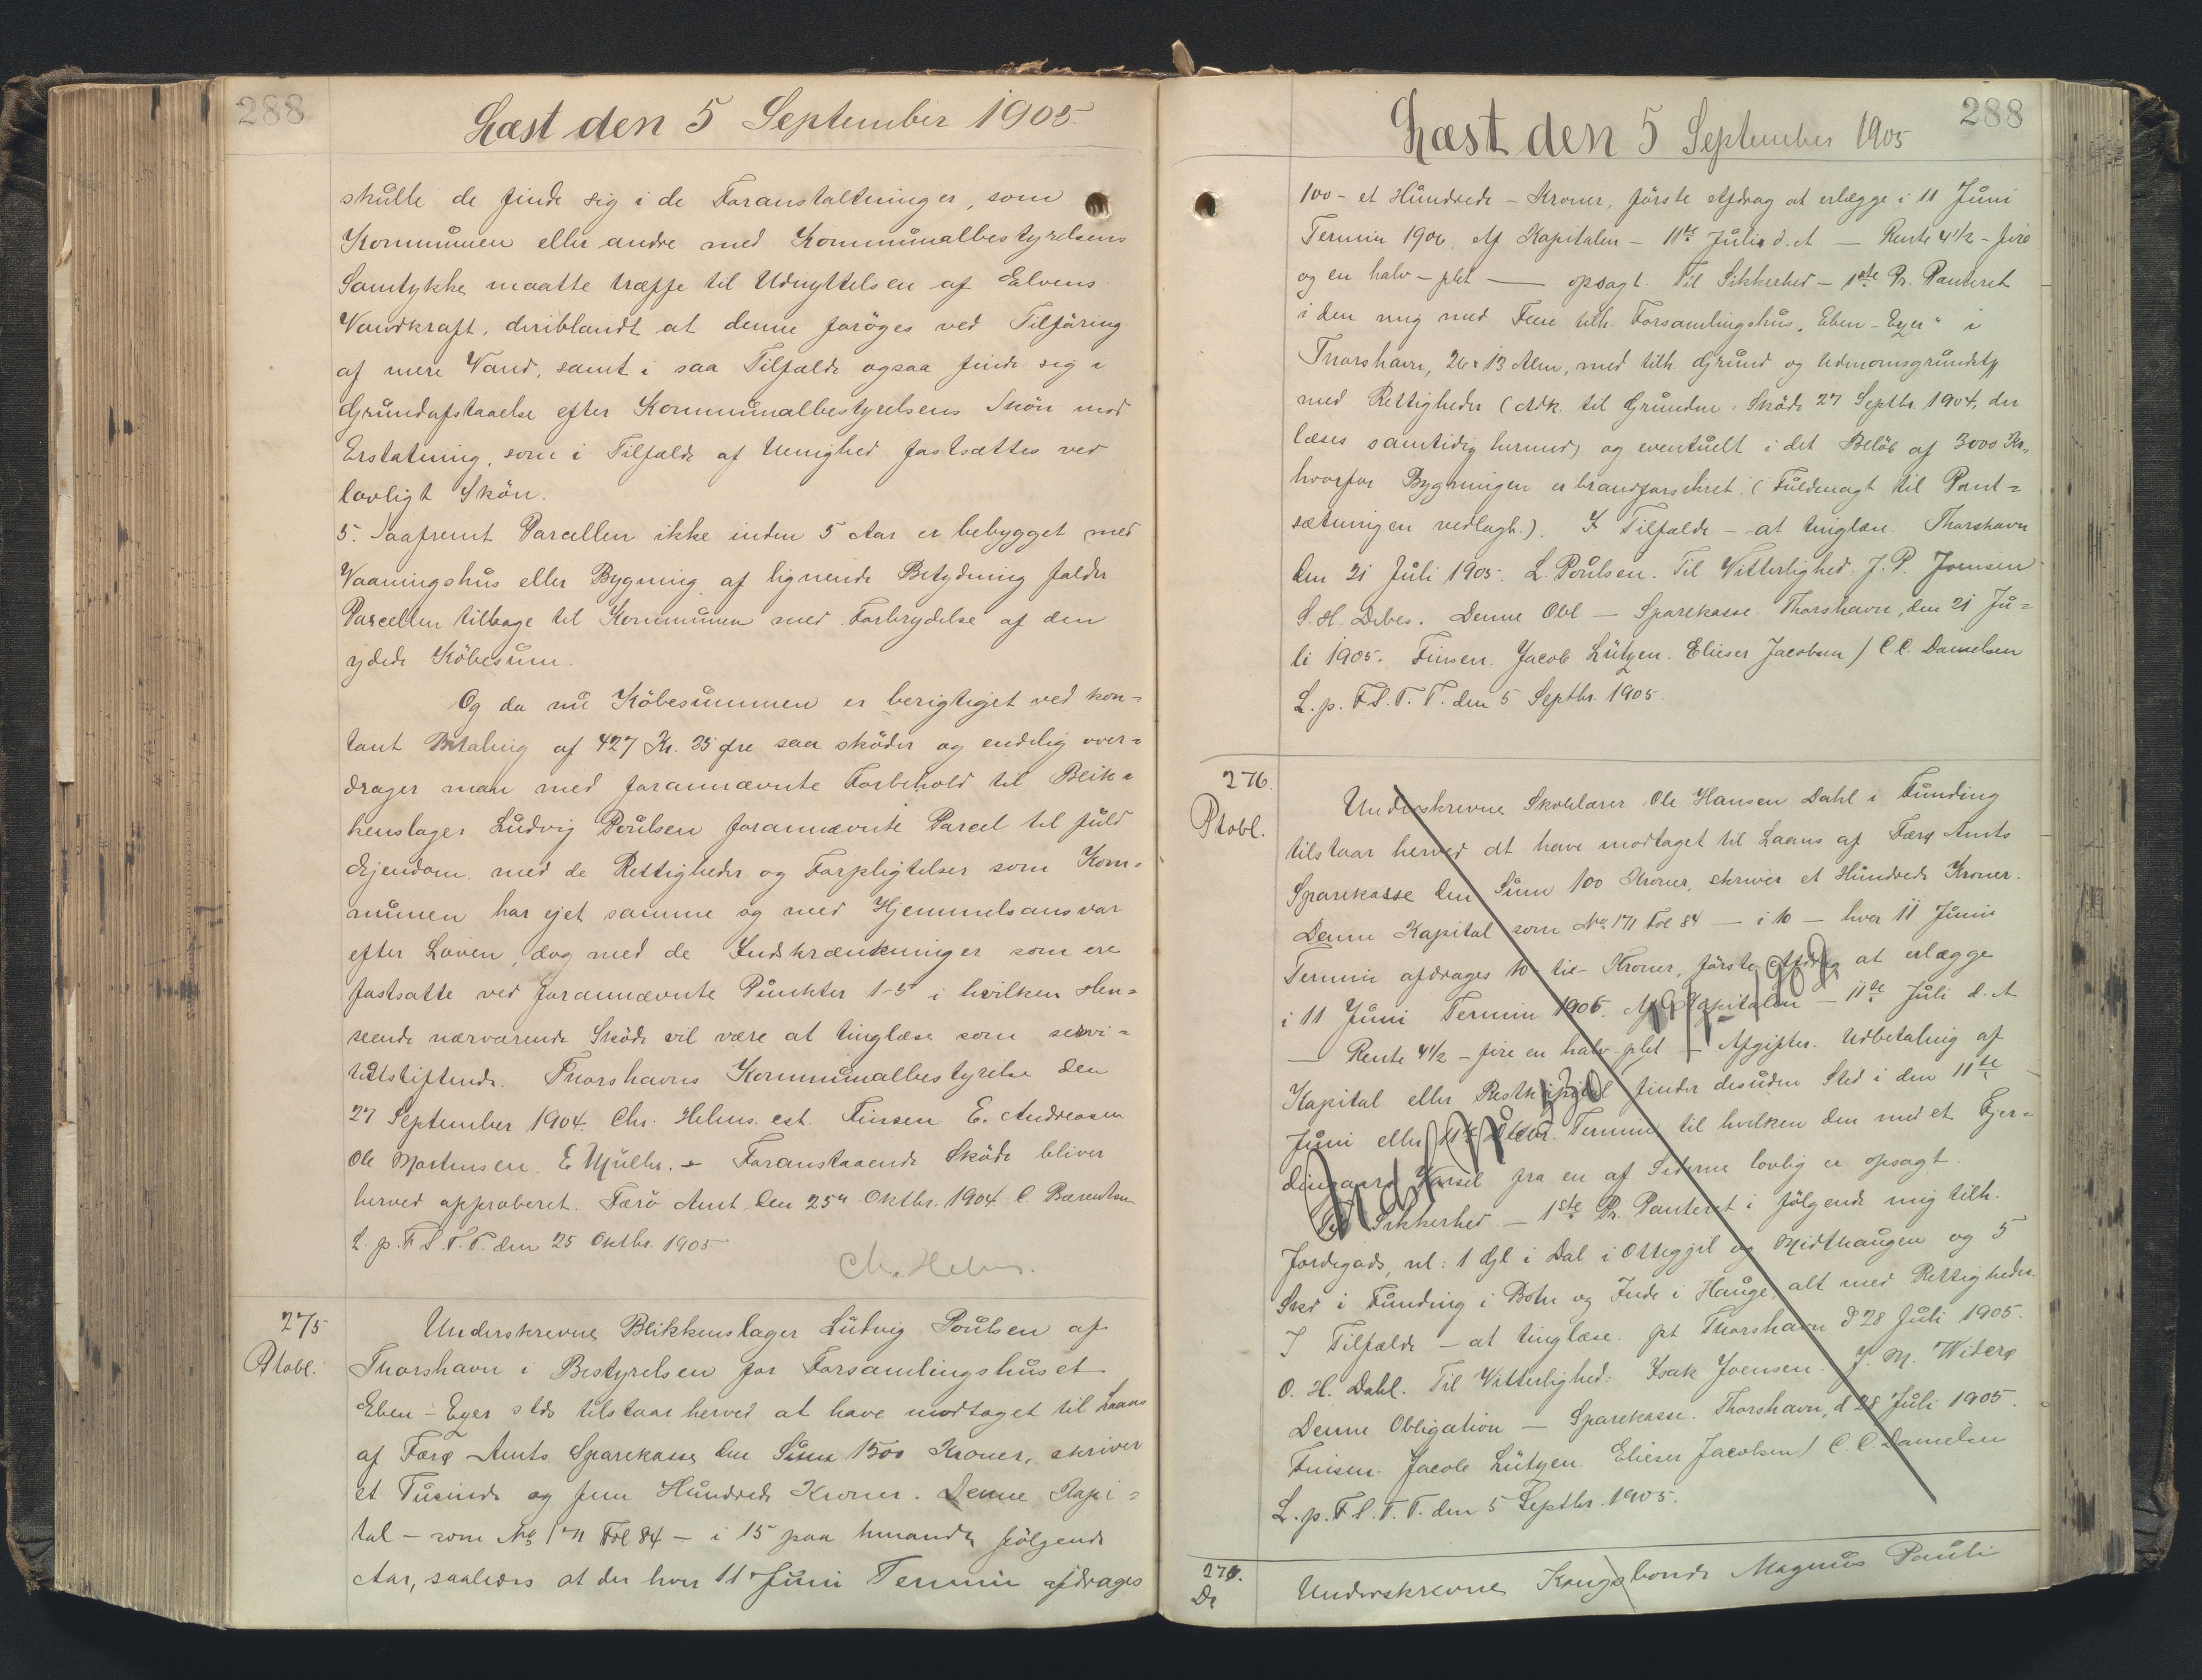 288
Læst den 5 September 1905.
skulle de finde sig i de Foranstaltninger, som
Kommunen eller andre med Kommunalbestyrelsens
Samtykke maatte træffe til Udnyttelsen af Elvens
Vandkraft, deriblandt at denne forøges ved Tilføring
af mere Vand, samt i saa Tilfælde ogsaa finde sig i
Grundafstaaelse efter Kommunalbestyrelsens Skøn mod
Erstatning, som i Tilfælde af Uenighed fastsættes ved
lovligt Skøn.
5. Saafremt Parcellen ikke inden 5 Aar er bebygget med
Vaaningshus eller Bygning af lignende Betydning falder
Parcellen tilbage til Kommunen med Forbrydelse af den
ydede Købesum.
Og da nu Købesummen er berigtiget ved kon=
tant Betaling af 427 Kr. 35 Øre saa skøder og endelig over=
drager man med forannævnte Forbehold til Blik=
kenslager Ludvig Poulsen forannævnte Parcel til fuld
Ejendom med de Rettigheder og Forpligtelser som Kom=
munen har ejet samme og med Hjemmelsansvar
efter Loven, dog med de Indskrænkninger som ere
fastsatte ved forannævnte Punkter 1-5 i hvilken Hen=
seende nærværende Skøde vil være at tinglæse som servi=
tutstiftende. Thorshavns Kommunalbestyrelse den
27 September 1904. Chr. Helms. cst. Finsen E. Andreasen
Ole Mortensen. E Müller. - Foranstaaende Skøde bliver
herved approberet. Færø Amt, den 25de Oktbr. 1904. C. Bærentsen
L. p. F. S. T. T. den 25 Oktbr. 1905
Chr. Helms.
275
Ptobl.
Underskrevne Blikkenslager Ludvig Poulsen af
Thorshavn i Bestyrelsen for Forsamlingshuset
Eben-Ezer stds tilstaar herved at have modtaget til Laans
af Færø Amts Sparekasse den Sum 1500 Kroner, skriver
et Tusinde og fem Hundrede Kroner. Denne Kapi=
tal - som No 171 Fol 84 - i 15 paa hinanden følgende
Aar, saaledes at der hver 11 Juni Termin afdrages
288
Læst den 5 September 1905
100 - et Hundrede - Kroner, første Afdrag at erlægge i 11 Juni
Termin 1906. Af Kapitalen - 11te Juli d. A. — Rente 4½ - fire
og en halv - pCt — opsagt. Til Sikkerhed - 1ste Pr. Panteret
i den mig med Flere tilh. Forsamlingshus "Eben-Ezer" i
Thorshavn, 26 x 13 Alen, med tilh. Grund og Udmarksgrundstk
med Rettigheder (Adk. til Grunden: Skøde 27 Septbr. 1904, der
læses samtidig hermed) og eventuelt i det Beløb af 3000 Kr.,
hvorfor Bygningen er brandforsikret. (Fuldmagt til Pant=
sætningen vedlagt.). I Tilfælde - at tinglæse. Thorshavn
den 21 Juli 1905. L. Poulsen. Til Vitterlighed: J. P. Joensen
S. H. Debes. Denne Obl — Sparekasse. Thorshavn, den 21 Ju=
li 1905. Finsen. Jacob Lützen. Elieser Jacobsen / C. C. Danielsen
L. p. F S. T. T. den 5 Septbr. 1905.
276.
Ptobl.
Underskrevne Skolelærer Ole Hansen Dahl i Funding
tilstaar herved at have modtaget til Laans af Færø Amts
Sparekasse den Sum 100 Kroner, skriver et Hundrede Kroner.
Denne Kapital som No. 171 Fol 84 — i 10 — hver 11 Juni
Termin afdrages 10 - tie - Kroner, første Afdrag at erlægge
i 11 Juni Termin 1906. Af Kapitalen — 11te Juli d. A
— Rente 4½ - fire en halv pCt — Afgifter. Udbetaling af
Kapital eller Restkapital finder desuden Sted i den 11te
Juni eller 11te Decbr. Termin til hvilken den med et Fjer=
dingaars Varsel fra en af Siderne lovlig er opsagt.
Til Sikkerhed — 1ste Pr. Panteret i følgende mig tilh.
Jordegods, nl: 1 Gl i Dal i Ottegjil og Midthaugen og 5
Skd i Funding i Bothe og Inde i Hauge, alt med Rettigheder.
I Tilfælde - at tinglæse. pt Thorshavn d 28 Juli 1905.
O. H. Dahl. Til Vitterlighed: Isak Joensen. J. M. Widerø
Denne Obligation — Sparekasse. Thorshavn, d 28 Juli 1905.
Finsen. Jacob Lützen. Elieser Jacobsen / C. C. Danielsen
L. p. F S. T. T. den 5 Septbr. 1905.
276.
Underskrevne Kongsbonde Magnus Pauli